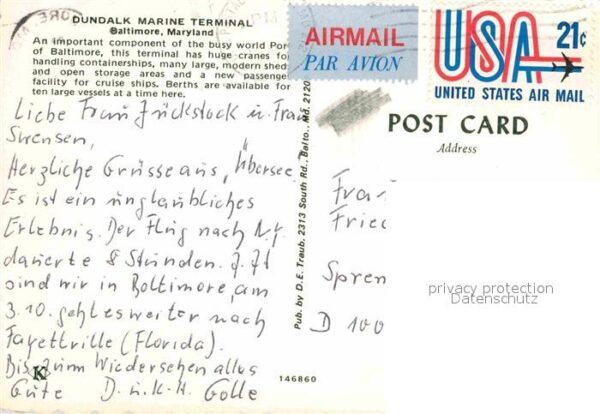 DUNDALK MARINE TERMINAL
Baltimore, Maryland
An important component of the busy world Por
of Baltimore, this terminal has huge cranes for
handling containerships, many large, modern shed
and open storage areas and a new passenger
facility for cruise ships. Berths are available for
ten large vessels at a time here.
Liebe Frau Zückstock u. Frau
Svensen,
Herzliche Grüsse aus, Übersee.
Es ist ein unglaubliches
Erlebnis. Der Flug nach N.Y.
dauerte 8 Stunden. Z.Zt
sind wir in Boltimore, am
3.10. geht es weiter nach
Fayettville (Florida).
Bis zum Wiedersehen alles
Gute D. u. K.H. Golle
K
146860
Pub. by D. E. Traub, 2313 South Rd., Balto., Md. 2120
AIRMAIL
PAR AVION
USA 21¢
UNITED STATES AIR MAIL
POST CARD
Address
Frau
Fried
Spren
D 100
privacy protection
Datenschutz